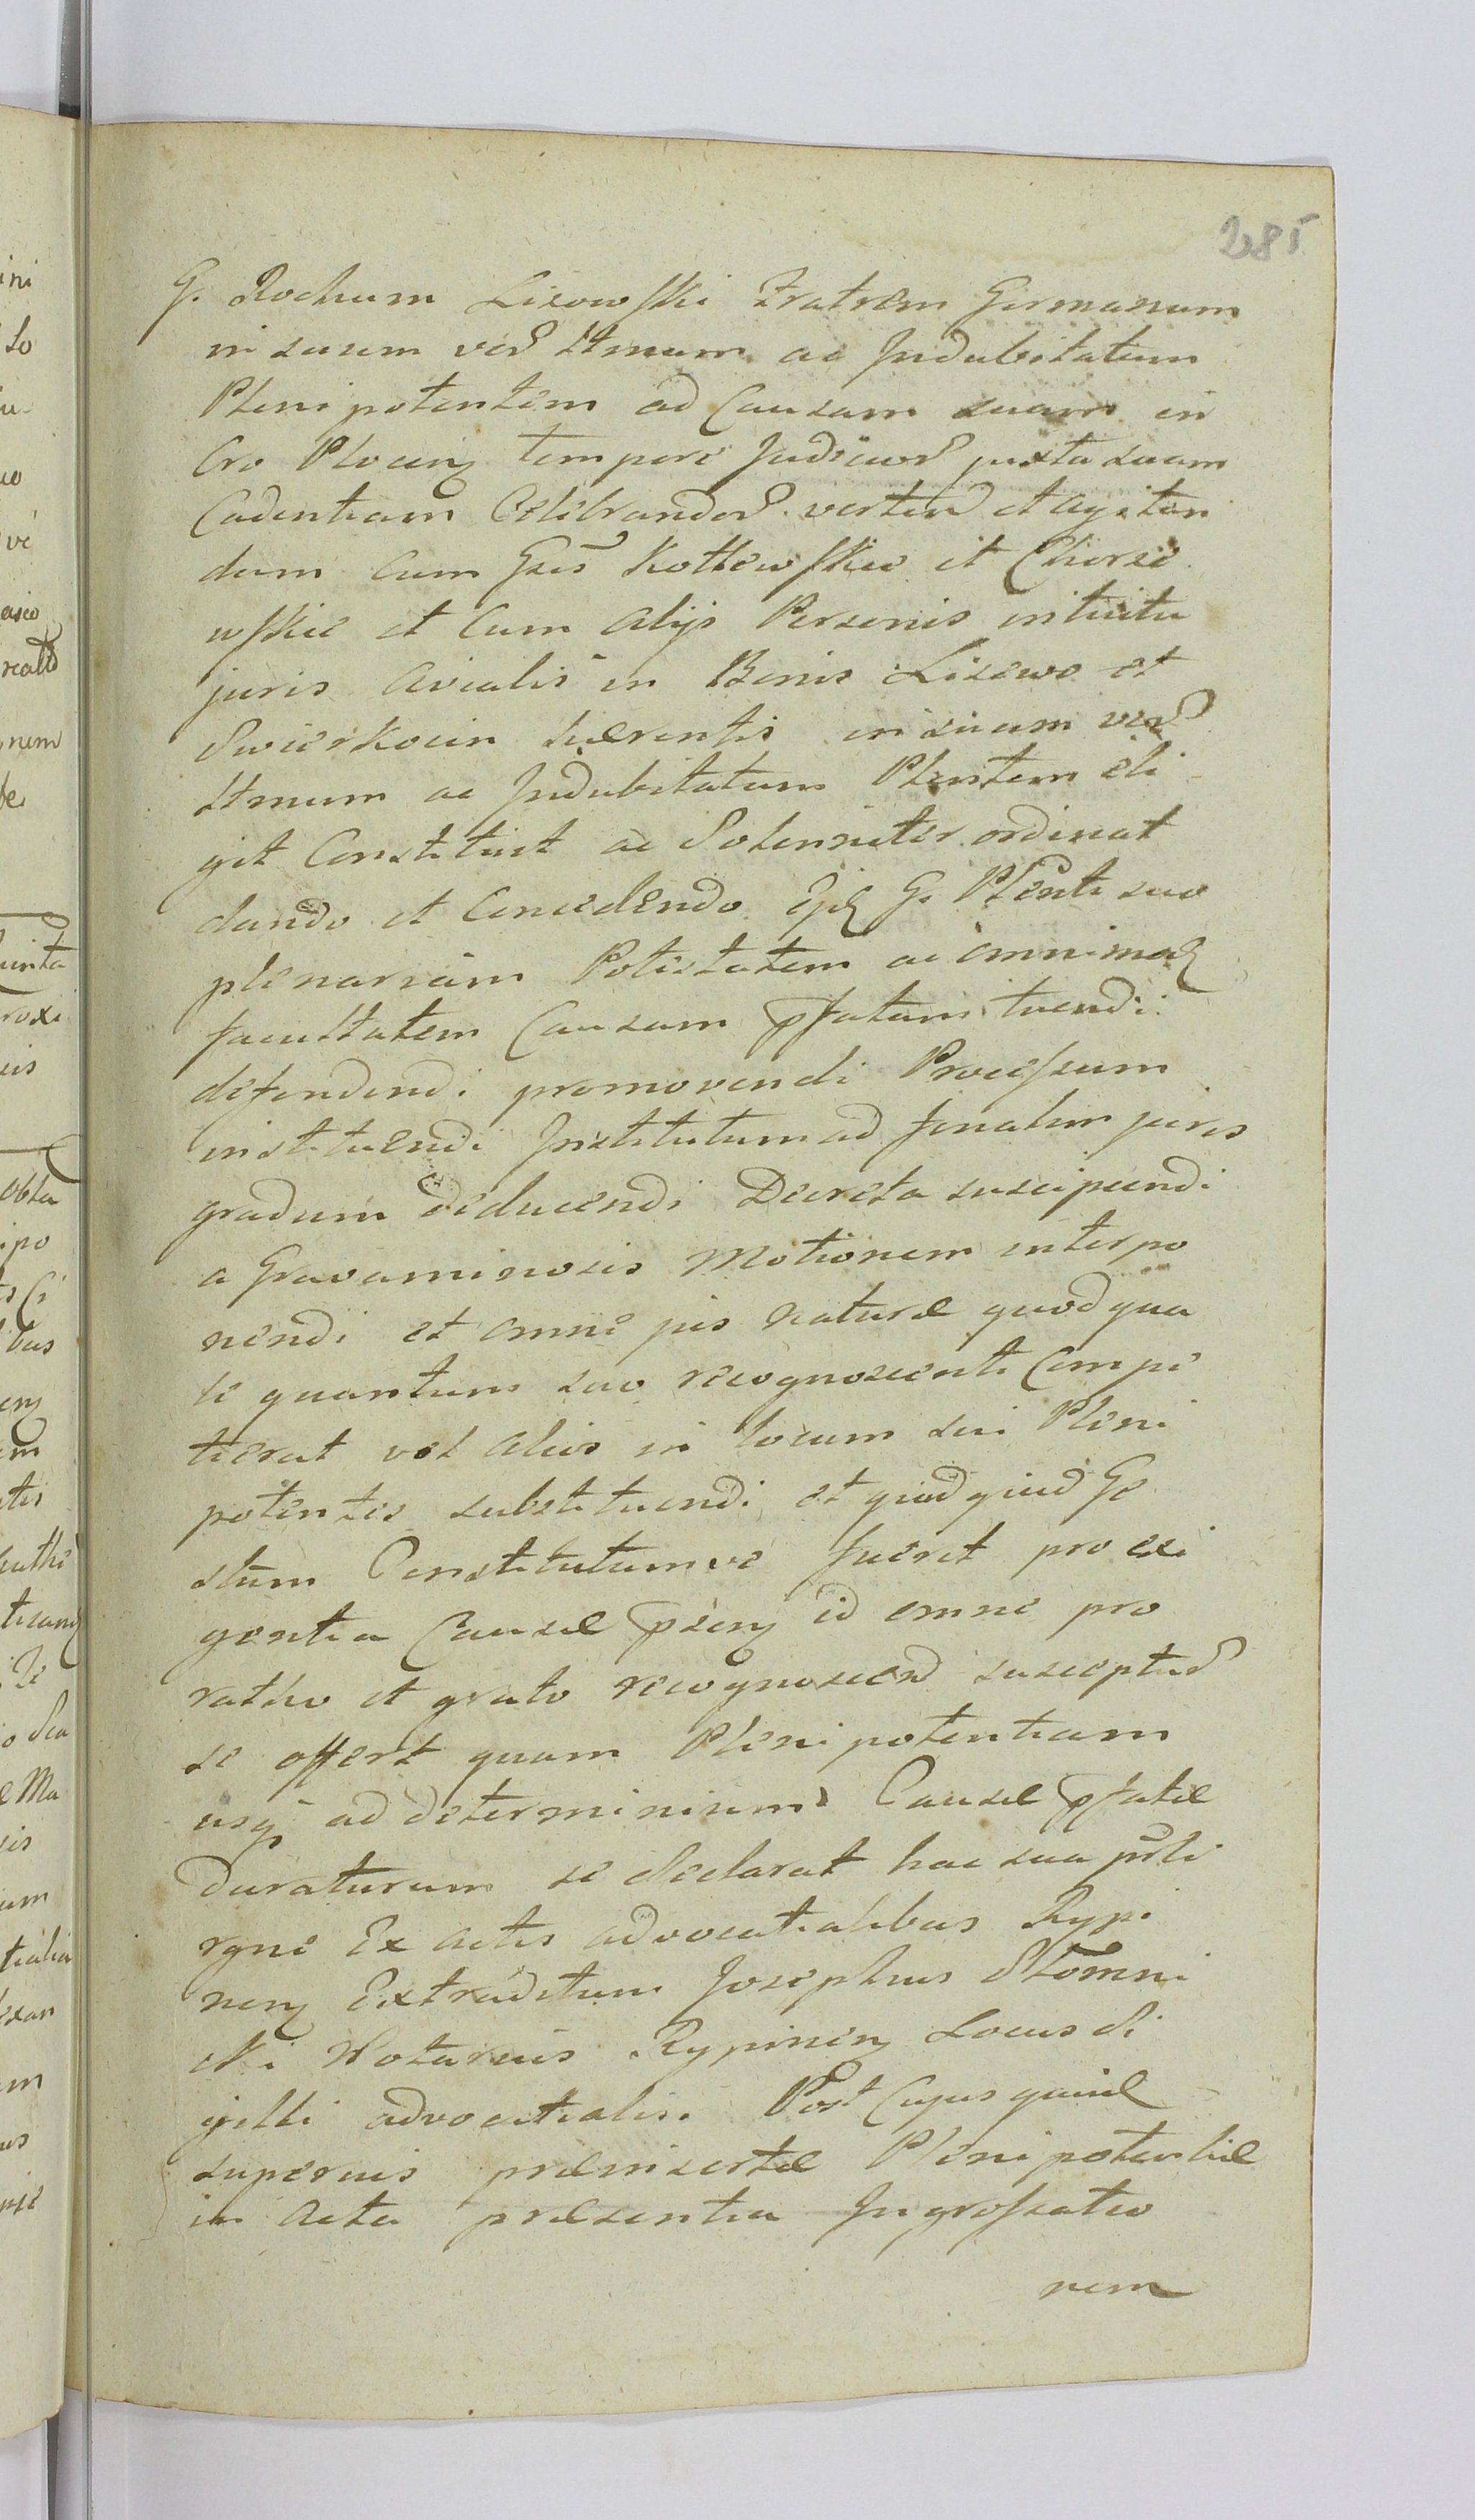 285
G. Rochum Lisowski Fratrem Germanum
in suum ver Ltmum ac Indubitatum
Plenipotentem ad Causam suam in
Cro Plocen tempore Judicior juxta suam
Cadentiam Celebrandor. verten et agitan
dam cum Gsis Kotlewskie et Chorze
wskie et Cum alijs Personis intuitu
juris avialis in Bonis Lisewo et
Swierkocin hærentis in suum ver
Ltmum ac Indubitatum Plentem eli
git Constituit ac Solenniter ordinat
dando et Concedendo G. Plenti suo
plenariam Potestatem ac omnimod
facultatem Causam pfatam tuendi
defendendi promovendi Processum
instituendi Institutum ad finalem juris
gradum deducendi Decreta suscipiendi
a Gravaminosis Motionem interpo
nendi et omne jus naturæ quod qua
le quantum suo recognoscenti Compe
tierat vel alios in locum sui Pleni
potentes substituendi et quid quid Ge
stum Constitutumve fuerit pro exi
gentia Causæ psen id omne pro
ratho et grato recognoscen suscepturd
se offert quam Plenipotentiam
usq ad determinium Causæ pfatæ
Duraturam se declarat hac sua
rgne Ex actis advocatialibus Rypi
nen Extraditum Josephus Slomni
cki Notarius Rypinen Locus Si
gilli advocatialis. Post Cujus quid
superius præinsertæ Plenipotentiæ
in acta præsentia Ingrossatio
nem